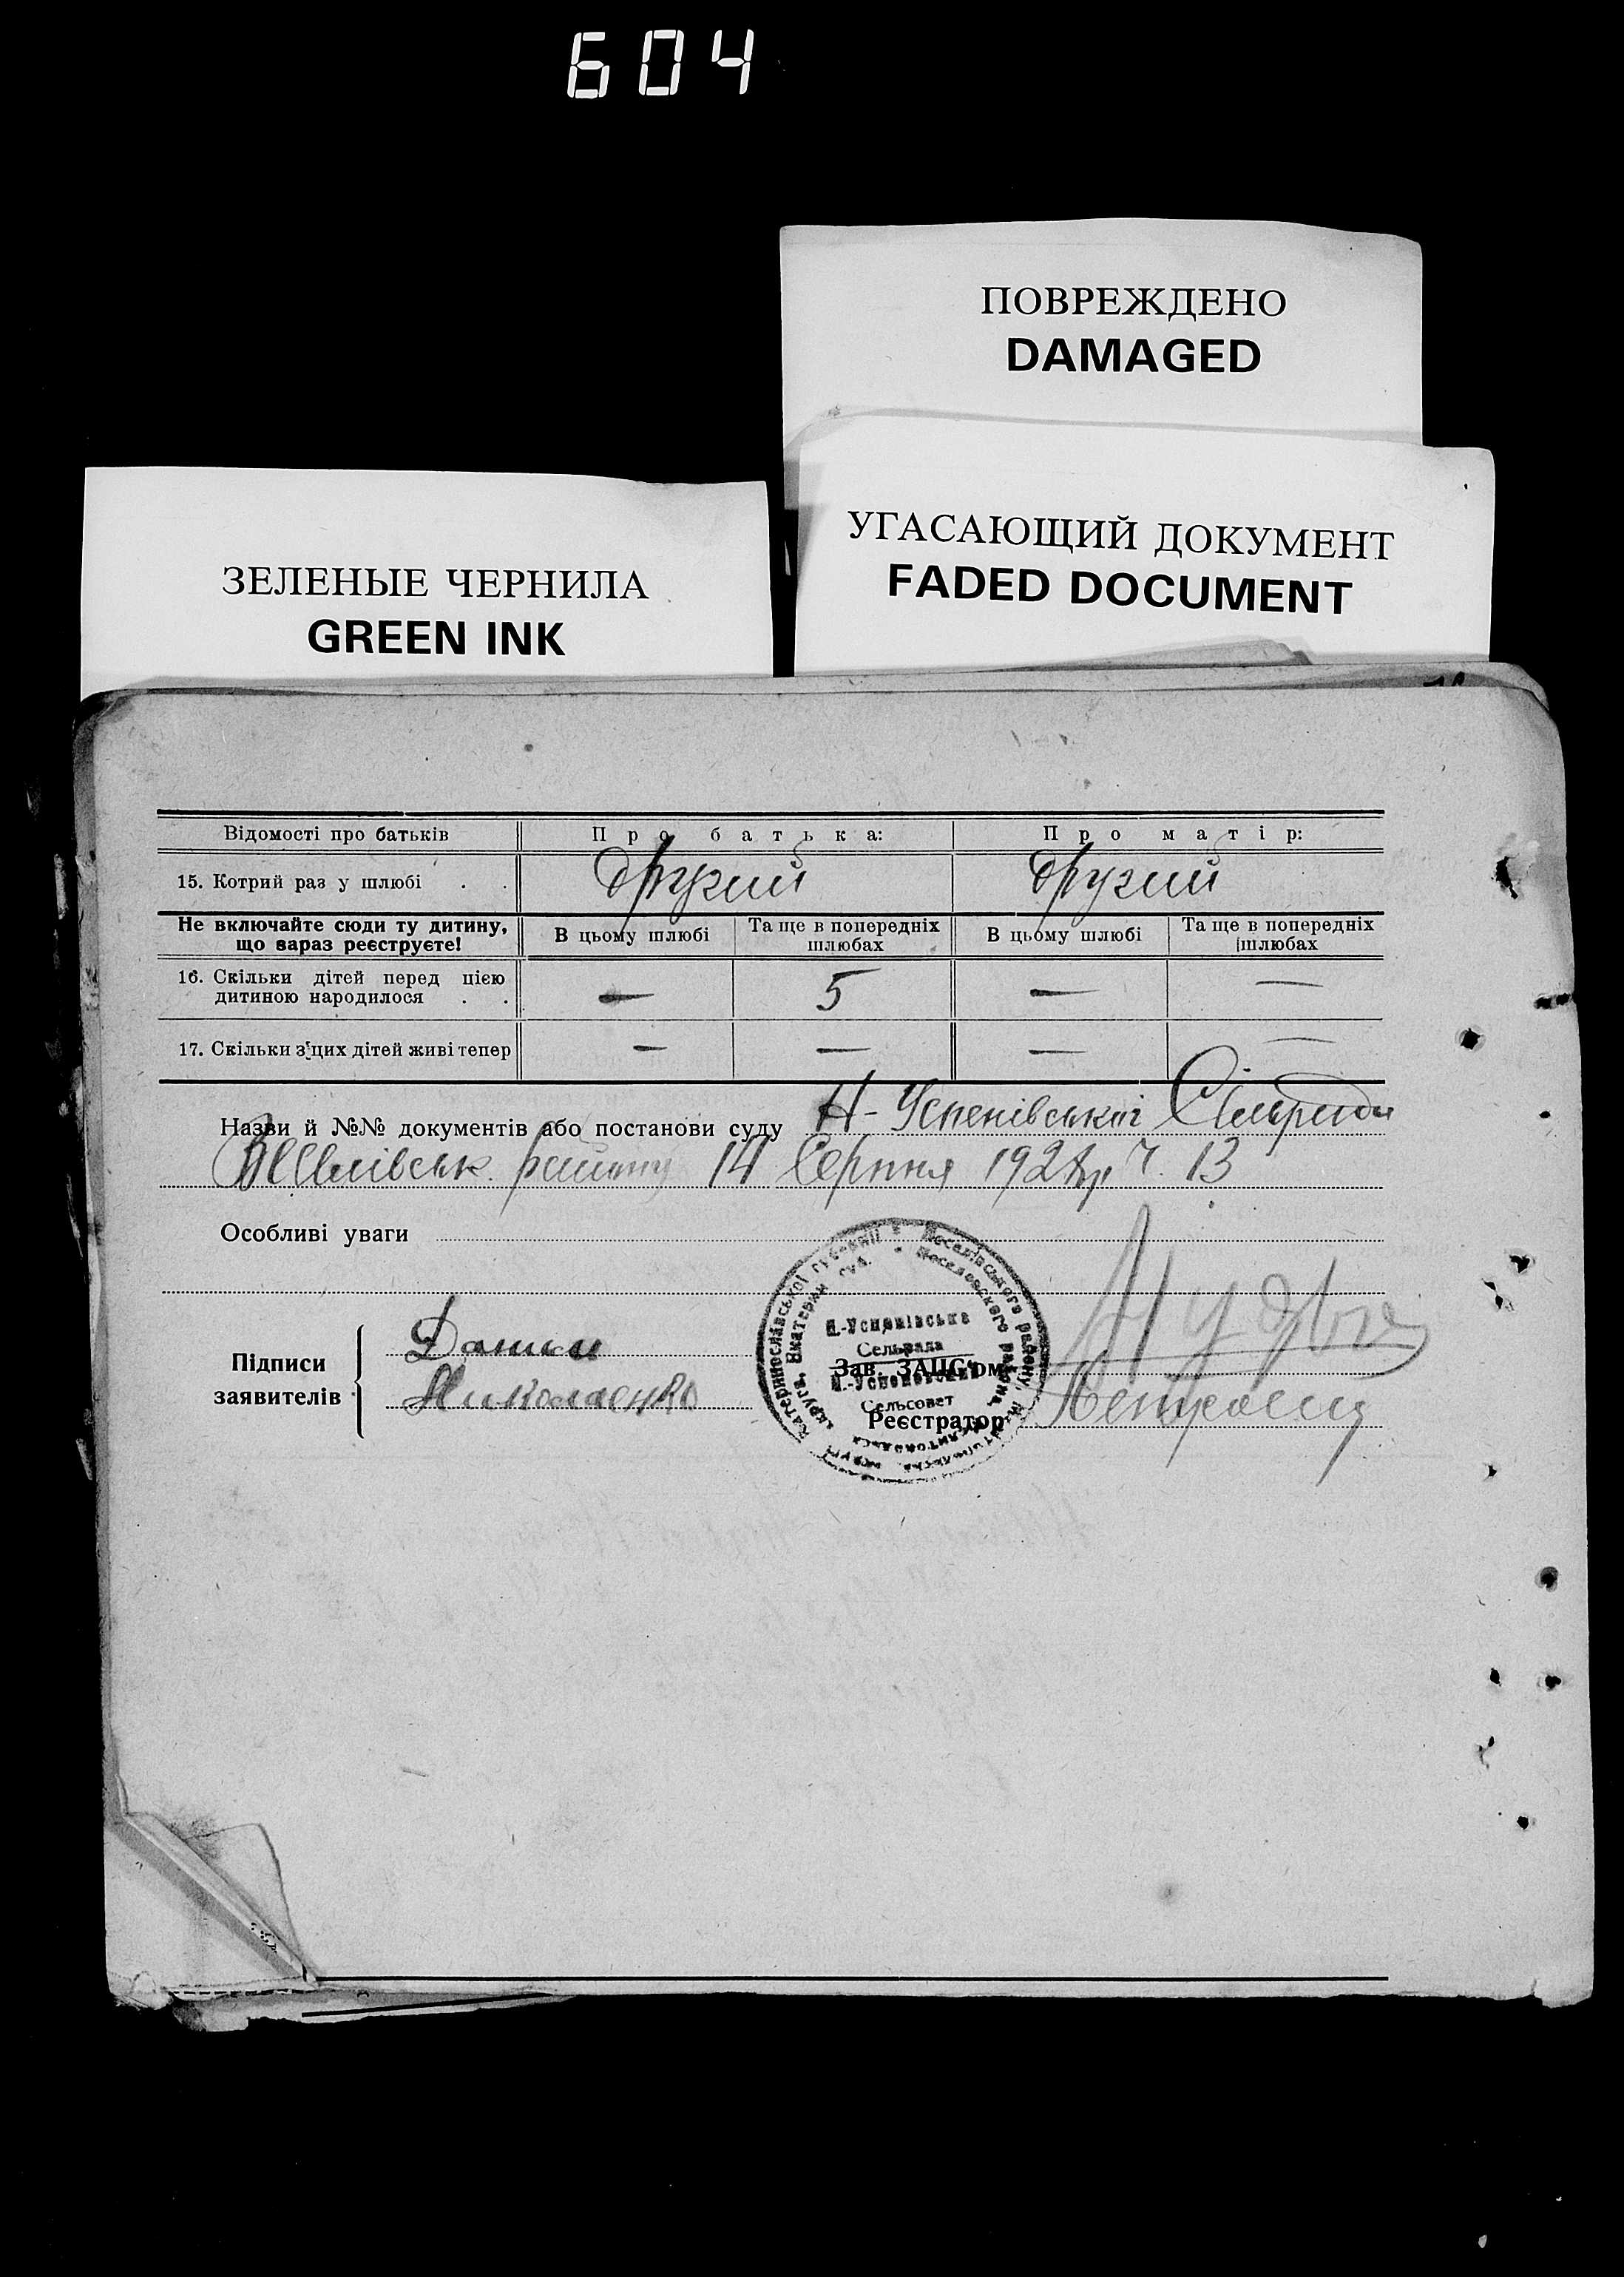 604
ПОВРЕЖДЕНО
DAMAGED
УГАСАЮЩИЙ ДОКУМЕНТ
FADED DOCUMENT
ЗЕЛЕНЫЕ ЧЕРНИЛА
GREEN INK
Відомості про батьків Про батька: Про матір:
15. Котрий раз у шлюбі . . другий другий
Не включайте сюди ту дитину,
що зараз реєструєте!
В цьому шлюбі
Та ще в попередніх
шлюбах
В цьому шлюбі
Та ще в попередніх
шлюбах
16. Скільки дітей перед цією
дитиною народилося . . — 5 — —
17. Скільки з цих дітей живі тепер — — — —
Назви й №№ документів або постанови суду Н-Успенівської Сільради
району 14 Серпня 192 р Ч. 13
Особливі уваги
Підписи
заявителів
Николаенко
Катеринославської губернії * Веселівського району,
Екатерин губ. * Веселовского района,
Н.-Успенівська
Сельрада
Н.-Успеновский
Сельсовет
Зав. ЗАЦС'ом
Реєстратор